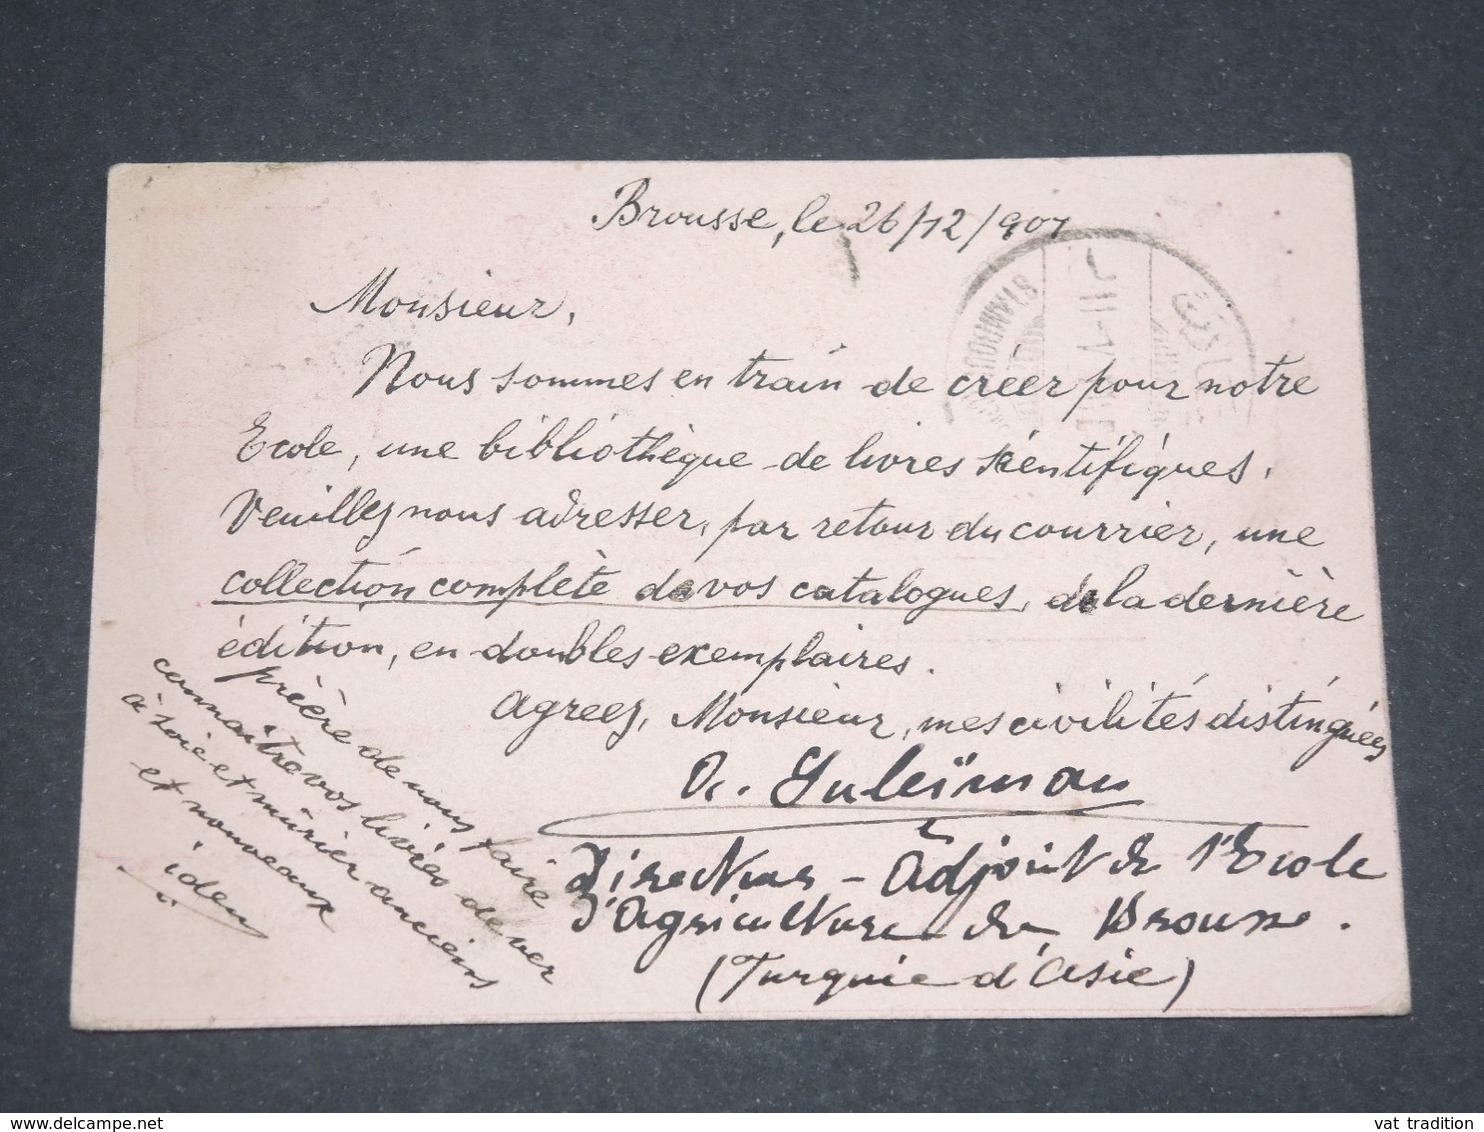 Brousse, le 26/12/907
Monsieur,
Nous sommes en train de creer pour notre
Ecole, une bibliothèque de livres sientifiques.
Veuillez nous adresser, par retour du courrier, une
collection complète de vos catalogues, de la dernière
édition, en doubles exemplaires.
Agreez, Monsieur, mes civilités distinguées
Suleïman
Directeur-Adjoint de l'Ecole
d'Agriculture de Brousse.
(Turquie d'Asie)
prière de nous faire
connaître vos livres de ver
à soie et mûrier anciens
et nouveaux
idem
STAMBOUL
www.delcampe.net
vat tradition